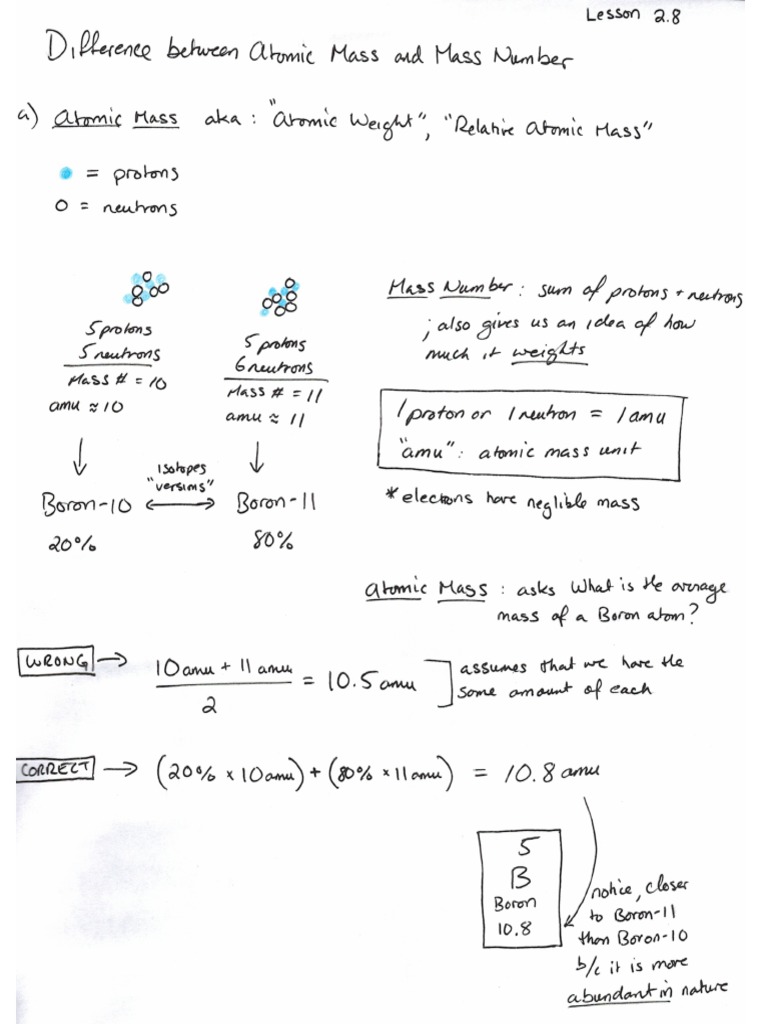 Lesson 2.8
Difference between Atomic Mass and Mass Number
a) Atomic Mass aka: "Atomic Weight", "Relative Atomic Mass"
= protons
O = neutrons
5 protons
5 neutrons
Mass # = 10
amu ≈ 10
5 protons
6 neutrons
Mass # = 11
amu ≈ 11
Mass Number: sum of protons + neutrons
; also gives us an idea of how
much it weights
1 proton or 1 neutron = 1 amu
"amu": atomic mass unit
* electrons have neglible mass
isotopes
"versims"
Boron-10 ↔ Boron-11
20% 80%
Atomic Mass: asks What is the average
mass of a Boron atom?
WRONG → 10amu + 11 amu
2
= 10.5 amu
assumes that we have the
same amount of each
CORRECT → (20% x 10amu) + (80% x 11amu) = 10.8 amu
5
B
Boron
10.8
notice, closer
to Boron-11
than Boron-10
b/c it is more
abundant in nature